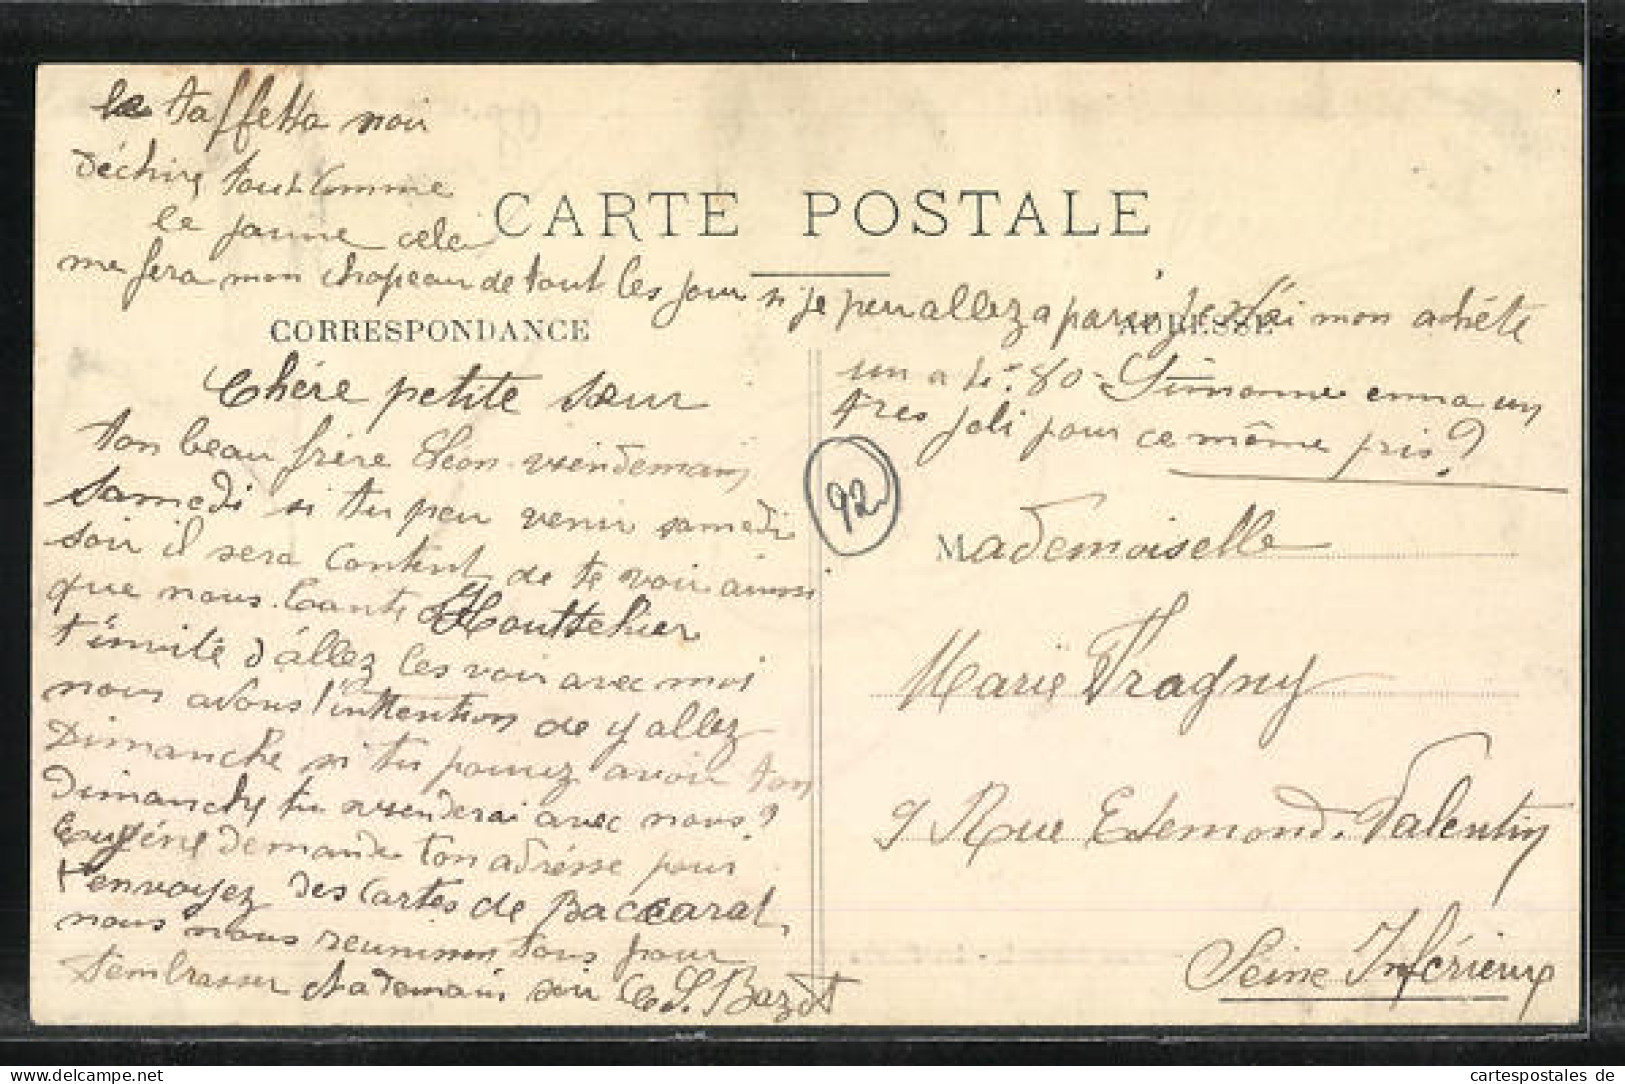 le taffetta noir
déchiré tout comme
le jaune cela
me fera mon chapeau de tout les jour si je peu allez a paris
mon achéte
un a 4f.80 Simonne enna un
tres joli pour ce même pris?
CARTE POSTALE
CORRESPONDANCE
ADRESSE
Chére petite sœur
ton beau frère Léon viendemain
samedi si tu peu venir samedi
soir il sera content de te voir aussi
que nous. tante Houttelier
t'invite d'allez les voir avec moi
nous avons l'inttention de y allez
Dimanche si tu pouvez avoir ton
dimanche tu vienderai avec nous?
Eugéne demande ton adrésse pour
t'envoyez des cartes de Baccarat,
nous nous reunisson tous pour
t'embrasser a demain soir L. Bazot
92
Mademoiselle
Marie Fragny
9 Rue Edemond. Valentin
Seine Inférieure
cartespostales de